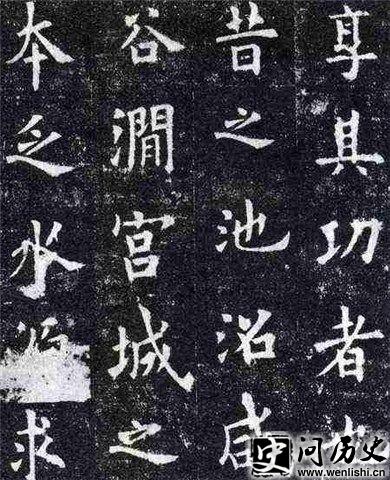 享其功者也
昔之池沼咸
谷澗宮城之
本乏水求
问历史
www.wenlishi.cn